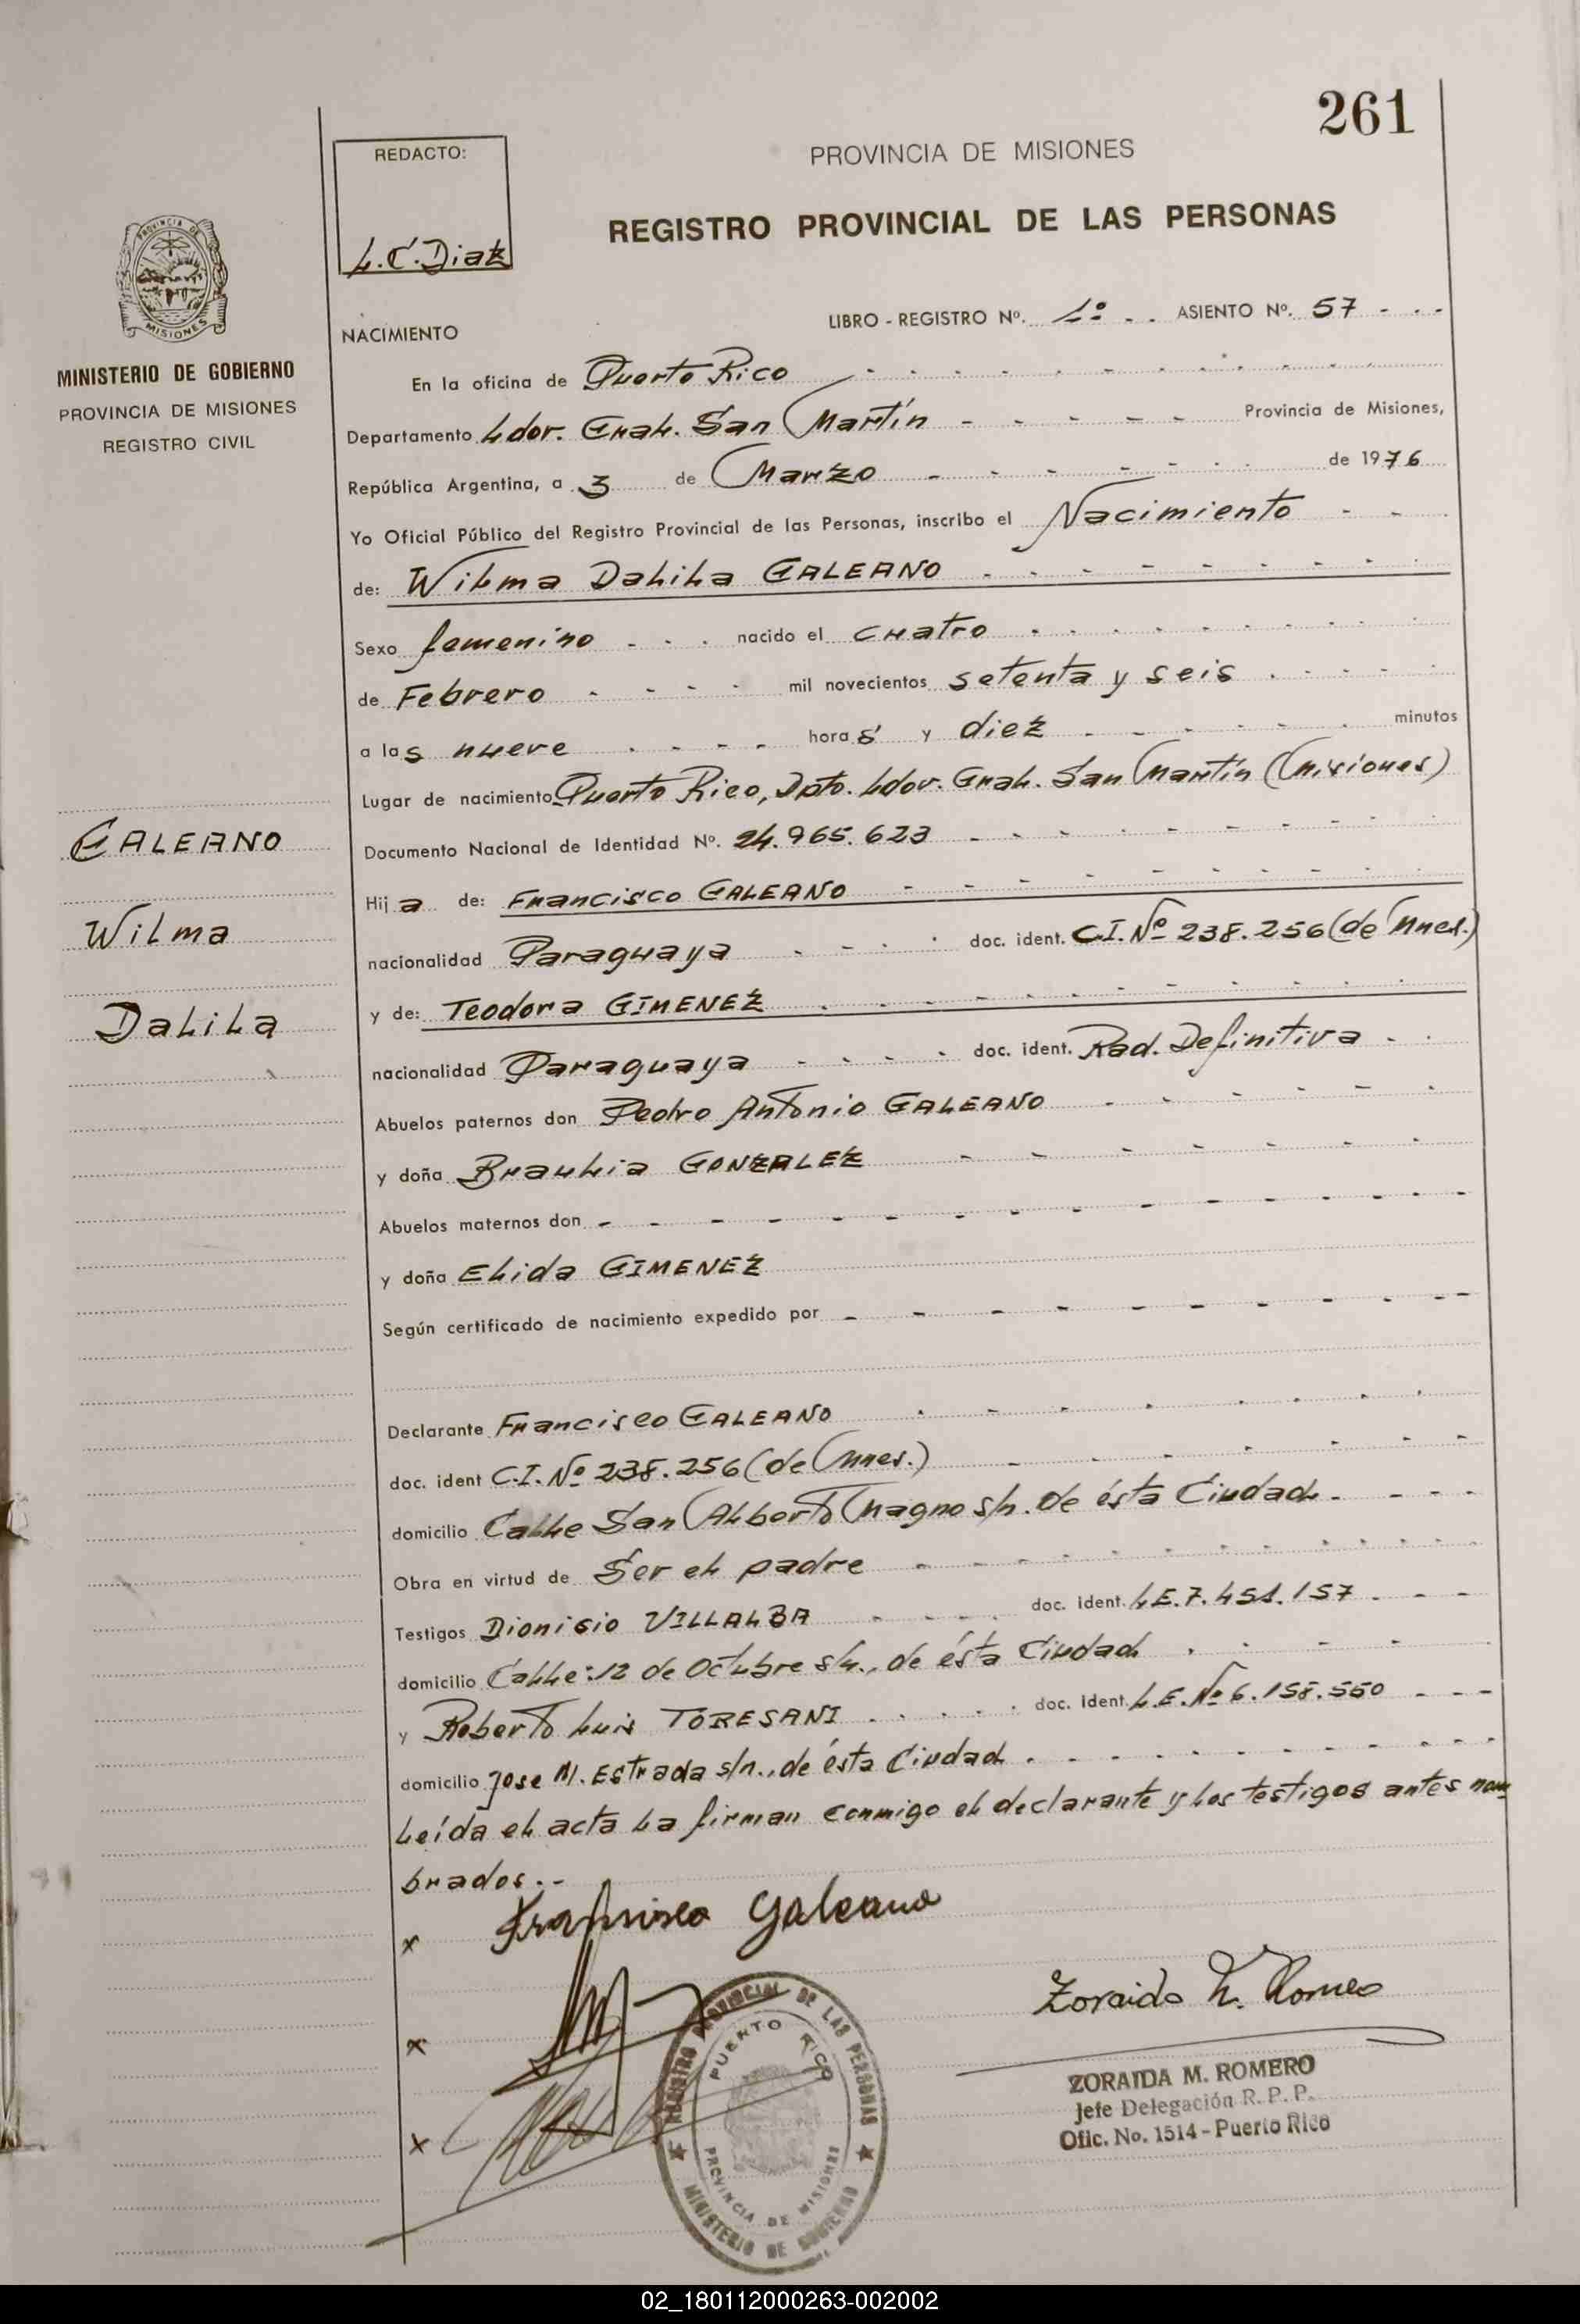 261
REDACTO:
L.C. Diaz
PROVINCIA DE MISIONES
REGISTRO PROVINCIAL DE LAS PERSONAS
PROVINCIA DE
MISIONES
MINISTERIO DE GOBIERNO
PROVINCIA DE MISIONES
REGISTRO CIVIL
NACIMIENTO LIBRO - REGISTRO Nº. 1º ASIENTO Nº. 57
En la oficina de Puerto Rico
Departamento Ldor. Gral. San Martín Provincia de Misiones,
República Argentina, a 3 de Marzo de 1976
Yo Oficial Público del Registro Provincial de las Personas, inscribo el Nacimiento
de: Wilma Dalila GALEANO
Sexo femenino nacido el cuatro
de Febrero mil novecientos setenta y seis
a las nueve horas y diez minutos
Lugar de nacimiento Puerto Rico, Dpto. Ldor. Gral. San Martín (Misiones)
GALEANO
Wilma
Dalila
Documento Nacional de Identidad Nº. 24.965.623
Hija de: Francisco GALEANO
nacionalidad Paraguaya doc. ident. C.I. Nº 238.256 (de Mnes.)
y de: Teodora GIMENEZ
nacionalidad Paraguaya doc. ident. Rad. Definitiva
Abuelos paternos don Pedro Antonio GALEANO
y doña Braulia GONZALEZ
Abuelos maternos don
y doña Elida GIMENEZ
Según certificado de nacimiento expedido por
Declarante Francisco GALEANO
doc. ident C.I. Nº 238.256 (de Mnes.)
domicilio Calle San Alberto Magno s/n. de ésta Ciudad
Obra en virtud de Ser el padre
Testigos Dionisio VILLALBA doc. ident. L.E. 7.451.157
domicilio Calle: 12 de Octubre s/n., de ésta Ciudad
y Roberto Luis TORESANI doc. ident. L.E. Nº 6.158.560
domicilio Jose M. Estrada s/n., de ésta Ciudad
Leída el acta la firman conmigo el declarante y los testigos antes nom
brados.-
x Francisco Galeano
x
x
REGISTRO PROVINCIAL DE LAS PERSONAS
PUERTO RICO
PROVINCIA DE MISIONES
MINISTERIO DE GOBIERNO
Zoraida M. Romero
ZORAIDA M. ROMERO
Jefe Delegación R. P. P.
Ofic. No. 1514 - Puerto Rico
02_180112000263-002002